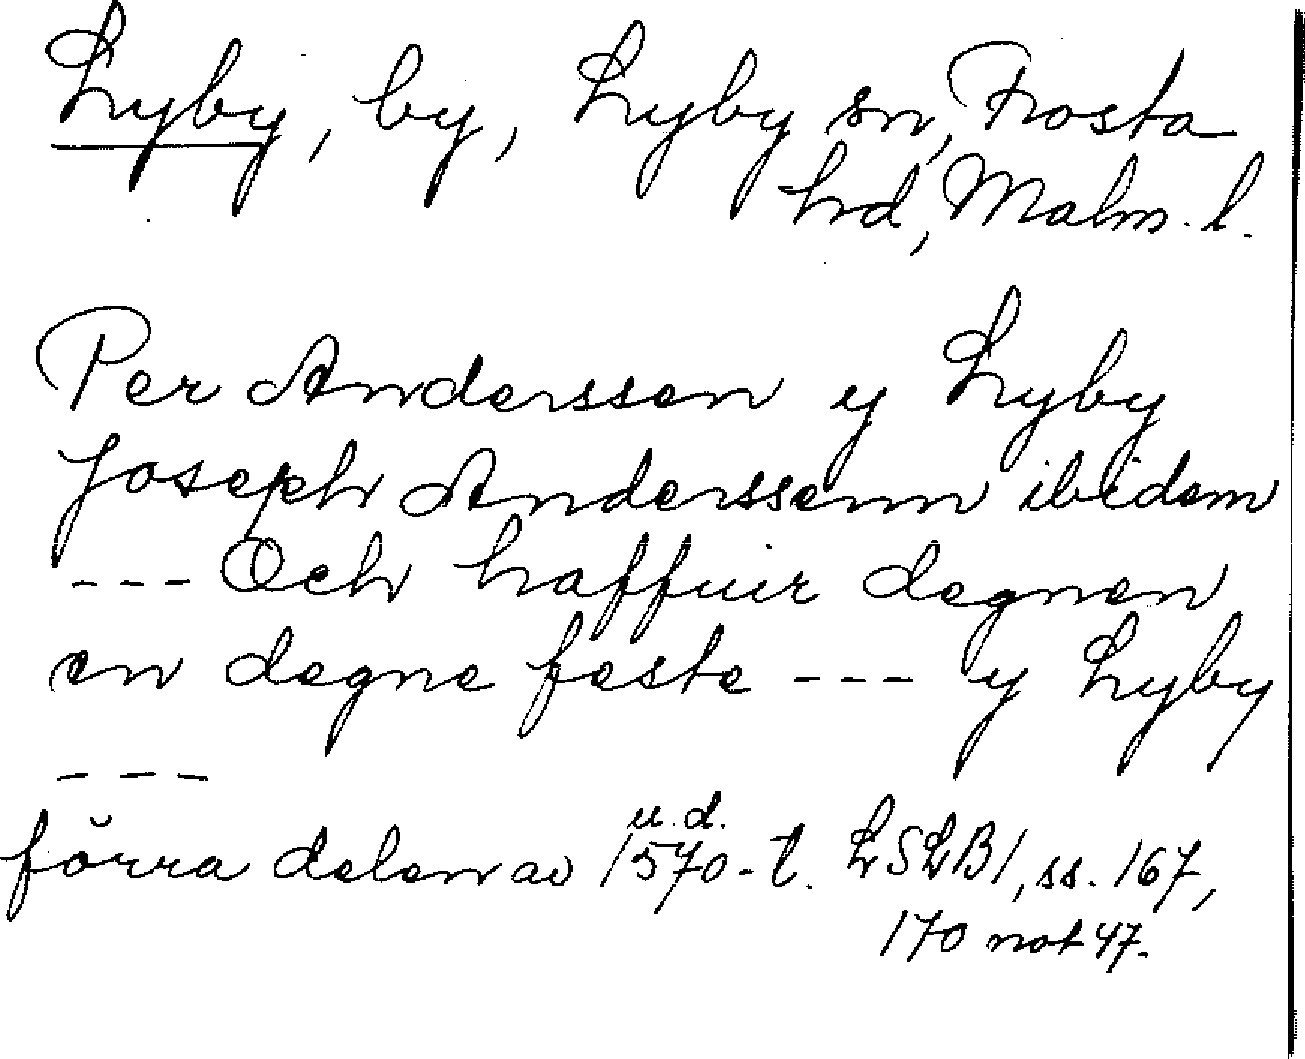 Lyby, by, Lyby sn, Frosta
hd, Malm. l.
Per Anderssen y Lyby
Joseph Anderssenn ibidem
--- Och haffuir degnen
en degne feste --- y Lyby
---
u. d.
förra delen av 1570-t. LSLB1, ss. 167,
170 not 47.